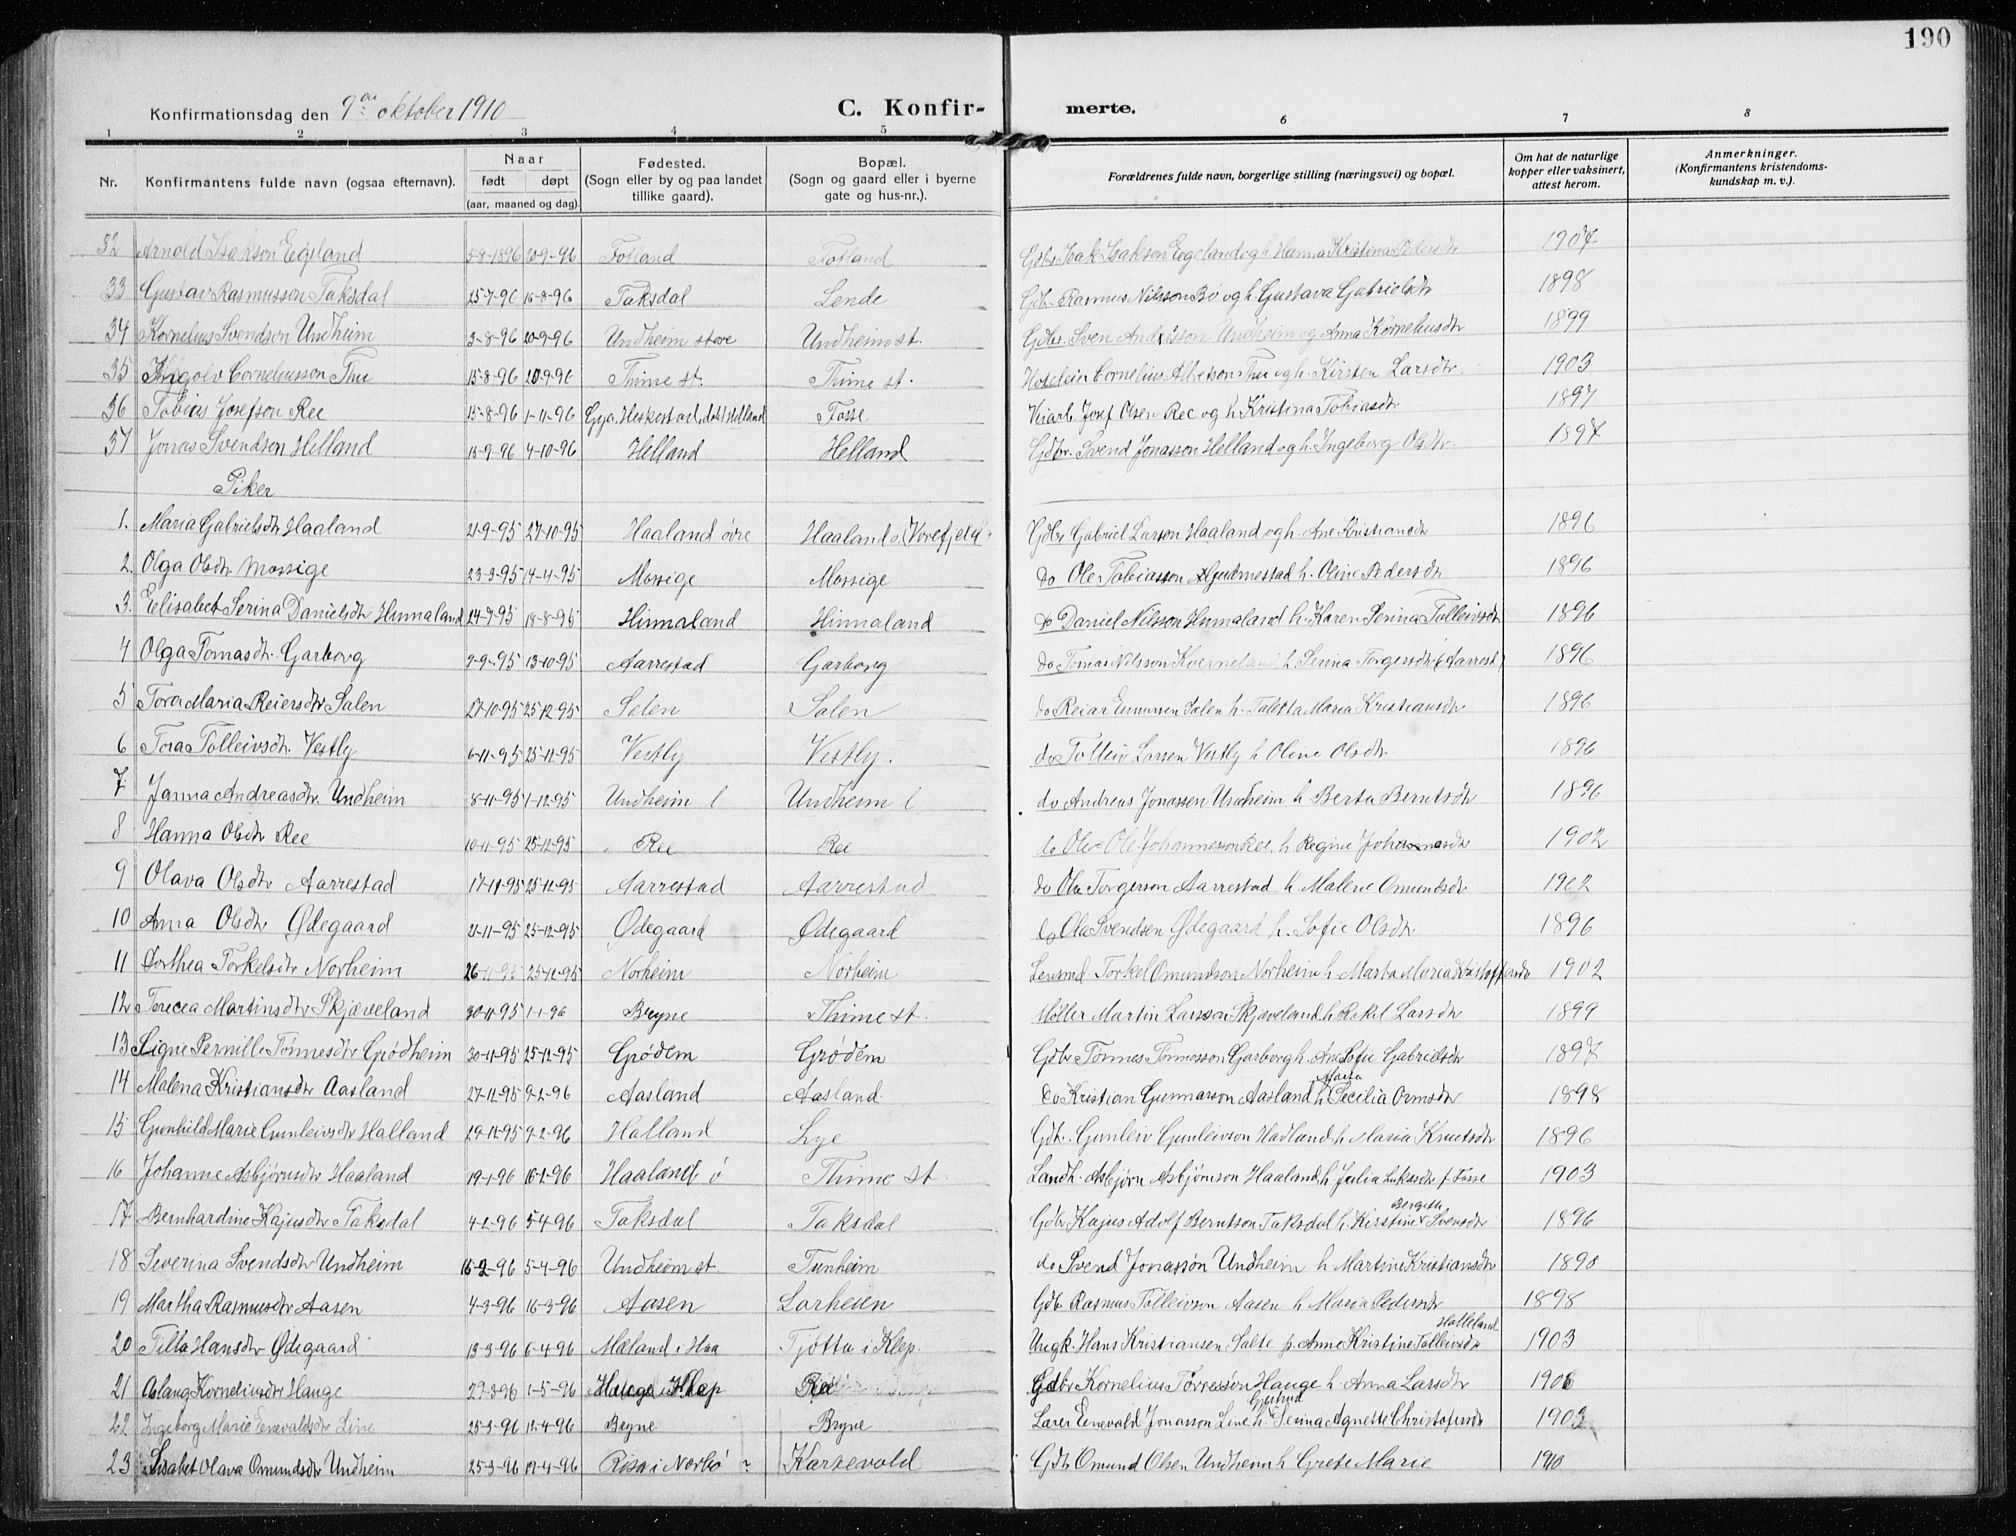 190
Konfirmationsdag den 9de oktober 1910
C. Konfir- merte.
1 2 3 4 5 6 7 8
Nr. Konfirmantens fulde navn (ogsaa efternavn). Naar født døpt (aar, maaned og dag). Fødested. (Sogn eller by og paa landet tillike gaard). Bopæl. (Sogn og gaard eller i byerne gate og hus-nr.). Forældrenes fulde navn, borgerlige stilling (næringsvei) og bopæl. Om hat de naturlige kopper eller vaksinert, attest herom. Anmerkninger. (Konfirmantens kristendoms- kundskap m. v.).
32 Arnold Isakson Egeland 5-8-1896 20-9-96 Fotland Fotland Gdbr Isak Isakson Egeland og h. Hanna Kristina Pedersdtr 1907
33 Gustav Rasmusson Taksdal 25-7-96 16-8-96 Taksdal Lende Gdb. Rasmus Nilsson Bø og h. Gustava Gabrielsdtr 1898
34 Kornelius Svendsen Undheim 3-8-96 20-9-96 Undheim store Undheim st. Gdbr. Sven Undheim og Anna Korneliusdtr 1899
35 Ingolv Corneliusson Thu 15-8-96 20-9-96 Thime st. Thime st. Cornelius Thu og h. Kirsten Larsdtr 1903
36 Tobias Josefson Ree 15-8-96 1-11-96 Heskestad, døbt Helland Fosse Veiarb Josef Olsen Ree og h Kristina Tobiasdtr 1897
37 Jonas Svendson Helland 13-9-96 4-10-96 Helland Helland Gdbr. Svend Jonasson Helland og h. Ingeborg Olsdtr 1897
Piker
1. Maria Gabrielsdtr Haaland 21-9-95 27-10-95 Haaland øvre Haaland ø. Gdbr Gabriel Larson Haaland og h. Ane Kristiansdtr 1896
2. Olga Olsdtr Mossige 23-3-95 14-4-95 Mossige Mossige do Ole Tobiasson Gudmestad h. Oline Pedersdtr 1896
3. Elisabet Serina Danielsdtr Hinnaland 24-7-95 18-8-95 Hinnaland Hinnaland do Daniel Nilsson Hinnaland h. Karen Serina Tolleivsdtr 1896
4 Olga Tomasdtr. Garborg 9-9-95 13-10-95 Aarrestad Garborg do Tomas Nilsson Kverneland h Serina Torgersdtr (Aarrest) 1896
5 Tora Maria Reiersdtr Salen 27-10-95 25-12-95 Salen Salen do Reiar Salen h. Taletta Maria Kristiansdtr 1896
6 Tora Tolleivsdtr. Vestly 6-11-95 25-12-95 Vestly Vestly. do Tolleiv Larsen Vestly h Oline Olsdtr 1896
7 Janna Andreasdtr Undheim 8-11-95 1-12-95 Undheim l Undheim l do Andreas Jonassen Undheim h Berta Berntsdtr 1896
8 Hanna Olsdtr Ree 10-11-95 25-12-95 Ree Ree do Ole Johannesson Ree. h Regine Johannesdtr 1902
9 Olava Olsdtr Aarrestad 17-11-95 25-12-95 Aarrestad Aarrestad do Ole Torgerson Aarrestad h. Malene Omundsdtr 1902
10 Anna Olsdtr Ødegaard 21-11-95 25-12-95 Ødegaard Ødegaard do Ola Svendsen Ødegaard h. Sofie Olsdtr 1896
11 Dorthea Torkelsdtr Norheim 26-11-95 25-12-95 Norheim Norheim Lensmd Torkel Omundson Norheim h Marta Maria Kristoffersdtr 1902
12 Terecea Martinsdtr Skjæveland 30-11-95 1-1-96 Bryne Thime st. Møller Martin Larsson Skjæveland h Rakel Larsdtr 1899
13 Signe Pernille Tønnesdtr Grødheim 30-11-95 25-12-95 Grødem Grødem Gdbr Tønnes Tønnesson Garborg h. Ane Sofie Gabrielsdtr 1897
14 Malena Kristiansdtr Aasland 27-12-95 9-2-96 Aasland Aasland do Kristian Gunnarson Aasland h Maria Cecilia Ormsdtr 1898
15 Gunhild Marie Gunleivsdtr Halland 29-12-95 9-2-96 Halland Lye Gdb. Gunleiv Gunleivson Hadland h Maria Knutsdtr 1896
16 Johanne Asbjørnsdtr Haaland 19-1-96 16-2-96 Haaland ø Thime st. Landh. Asbjørn Asbjørnson Haaland h. Julia Lukasdtr f. Fosse 1903
17 Bernhardine Kajusdtr Taksdal 4-2-96 5-4-96 Taksdal Taksdal Gdbr Kajus Adolf Berntson Taksdal h. Kirstine Bergitte Svensdtr 1896
18 Severina Svendsdtr Undheim 15-2-96 5-4-96 Undheim st. Tunheim do Svend Jonassøn Undheim h Martine Kristiansdtr 1898
19 Martha Rasmusdtr Aasen 4-3-96 16-3-96 Aasen Lorhesen Gdb Rasmus Tolleivson Aasen h Maria Pedersdtr 1898
20 Tilla Hansdtr Ødegaard 13-3-96 6-4-96 Mæland i Haa Tjøtta i Klep. Ungk. Hans Kristiansen Salte p. Anne Kristine Tolleivsdtr Halleland 1903
21 Aslaug Korneliusdtr Hauge 27-3-96 1-5-96 Hauge i Klep Ree Gdbr Kornelius Torresson Hauge h. Anna Larsdtr 1906
22 Ingeborg Marie Enevaldsdtr Line 25-3-96 12-4-96 Bryne Bryne Lærer Enevald Jonasson Line h. Gjertrud Serina Agnette Christofersdtr 1903
23 Lisabet Olava Omundsdtr Undheim 25-3-96 17-4-96 Risa i Nærbø ? Karsevold Gdbr Omund Olsen Undheim h Grete Marie 1910